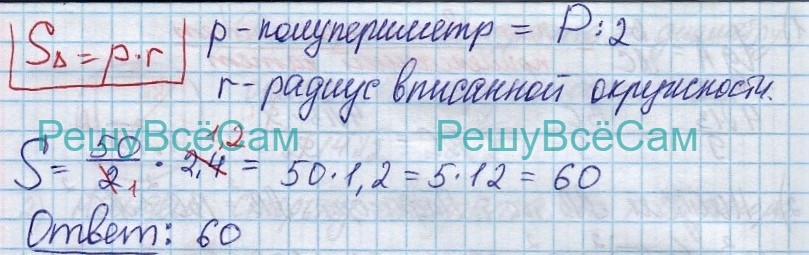 S∆ = p·r   p - полупериметр = P:2
r - радиус вписанной окружности.
РешуВсёСам РешуВсёСам
S = 50/2 1 · 2,4 1,2 = 50·1,2 = 5·12 = 60
Ответ: 60